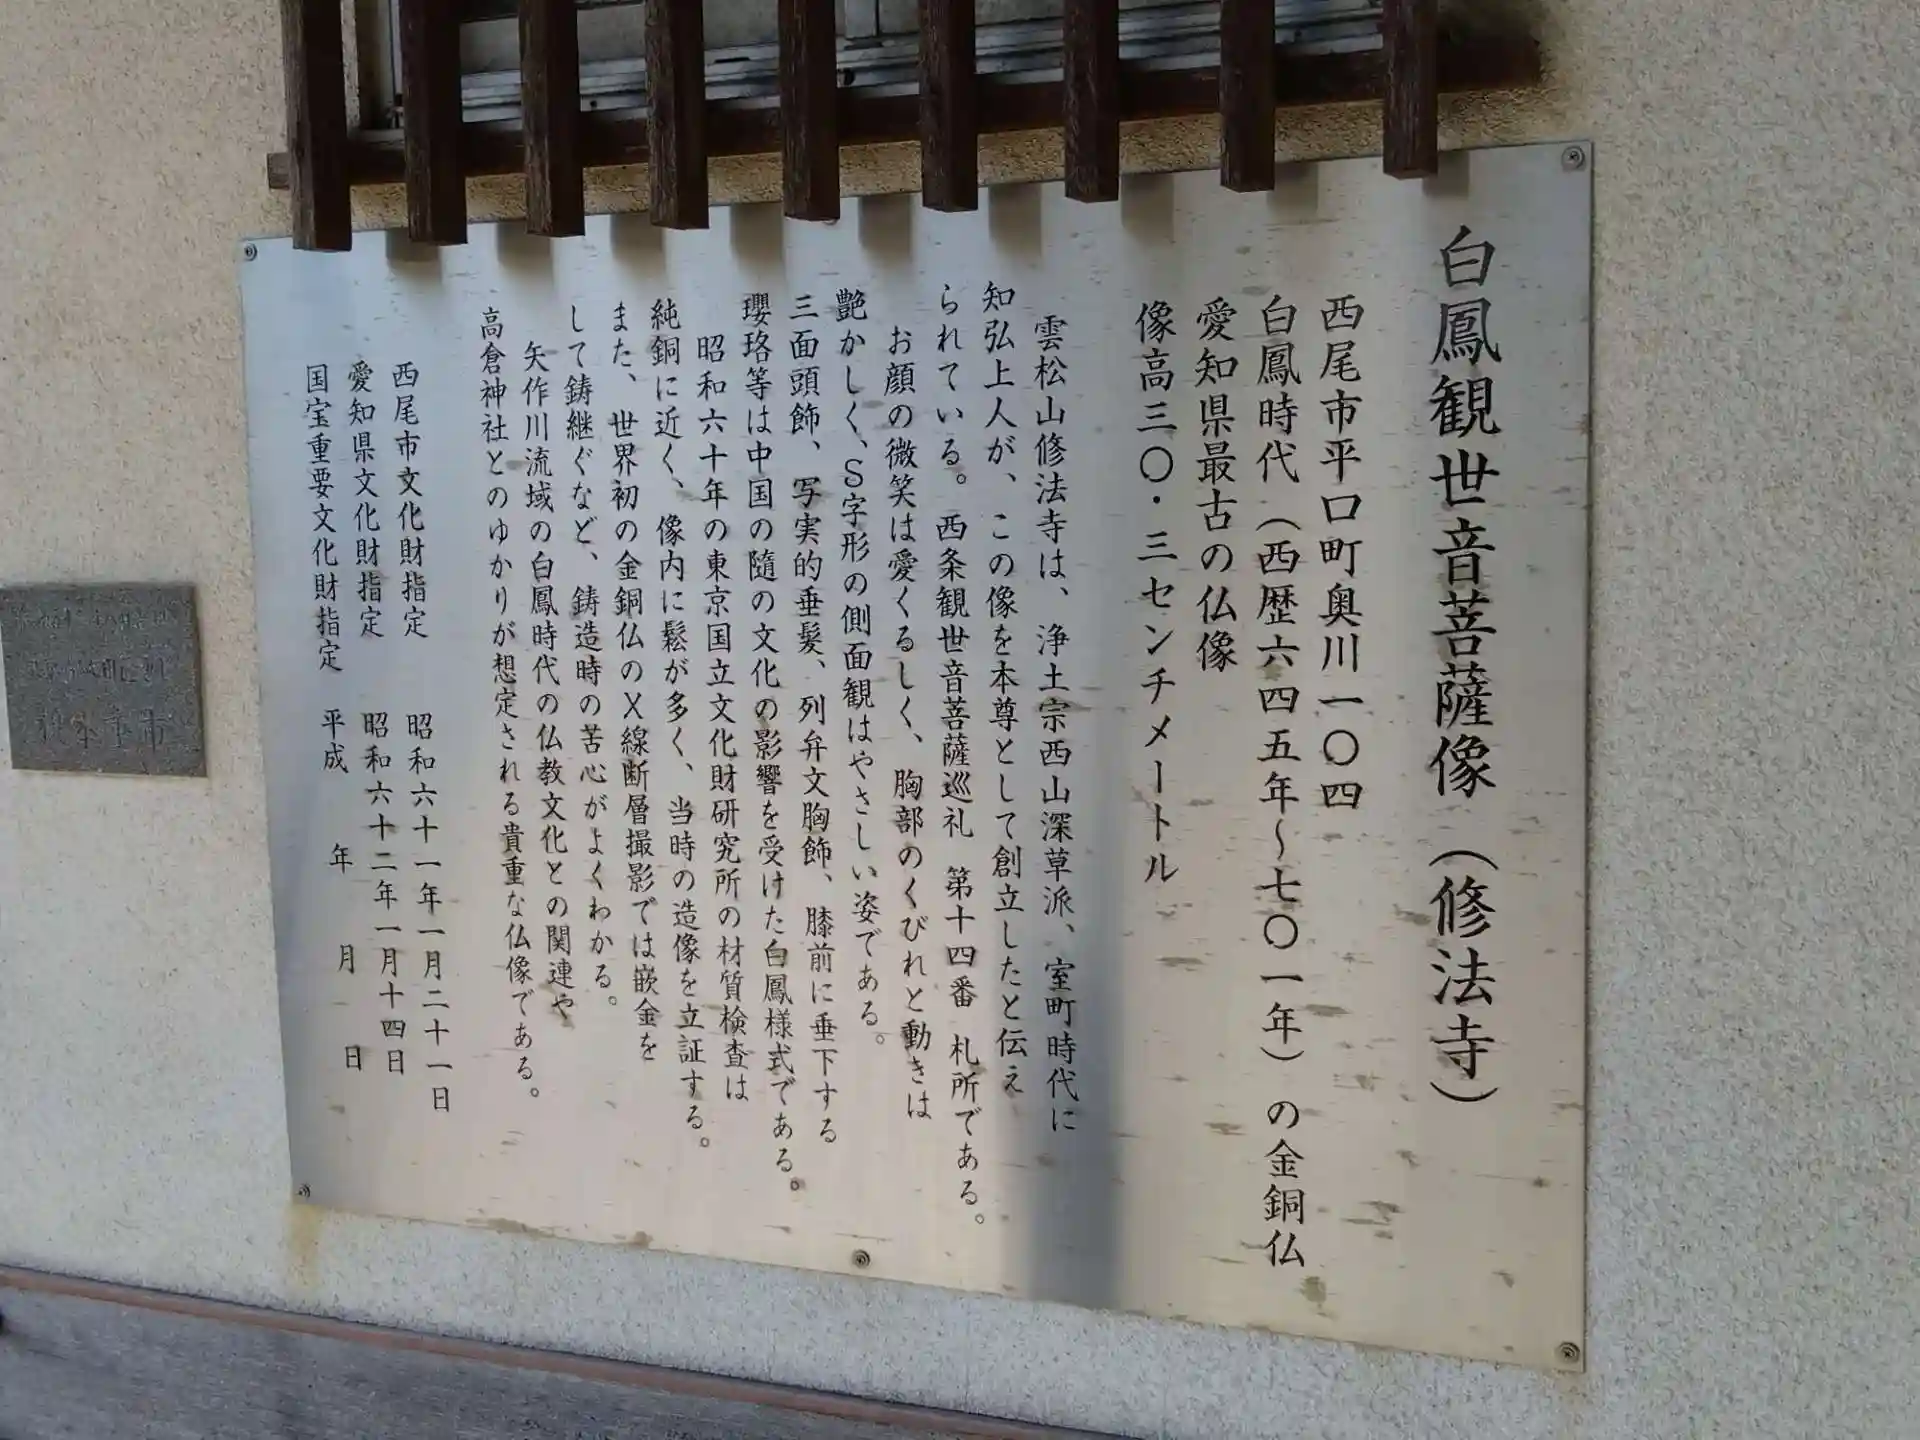 白鳳観世音菩薩像（修法寺）
西尾市平口町奥川一〇四
白鳳時代（西歴六四五年～七〇一年）の金銅仏
愛知県最古の仏像
像高三〇・三センチメートル
雲松山修法寺は、浄土宗西山深草派、室町時代に
知弘上人が、この像を本尊として創立したと伝え
られている。西条観世音菩薩巡礼　第十四番　札所である。
お顔の微笑は愛くるしく、胸部のくびれと動きは
艶かしく、Ｓ字形の側面観はやさしい姿である。
三面頭飾、写実的垂髪、列弁文胸飾、膝前に垂下する
瓔珞等は中国の隨の文化の影響を受けた白鳳様式である。
昭和六十年の東京国立文化財研究所の材質検査は
純銅に近く、像内に鬆が多く、当時の造像を立証する。
また、世界初の金銅仏のＸ線断層撮影では嵌金を
して鋳継ぐなど、鋳造時の苦心がよくわかる。
矢作川流域の白鳳時代の仏教文化との関連や
高倉神社とのゆかりが想定される貴重な仏像である。
西尾市文化財指定　昭和六十一年一月二十一日
愛知県文化財指定　昭和六十二年一月十四日
国宝重要文化財指定　平成　年　月　日